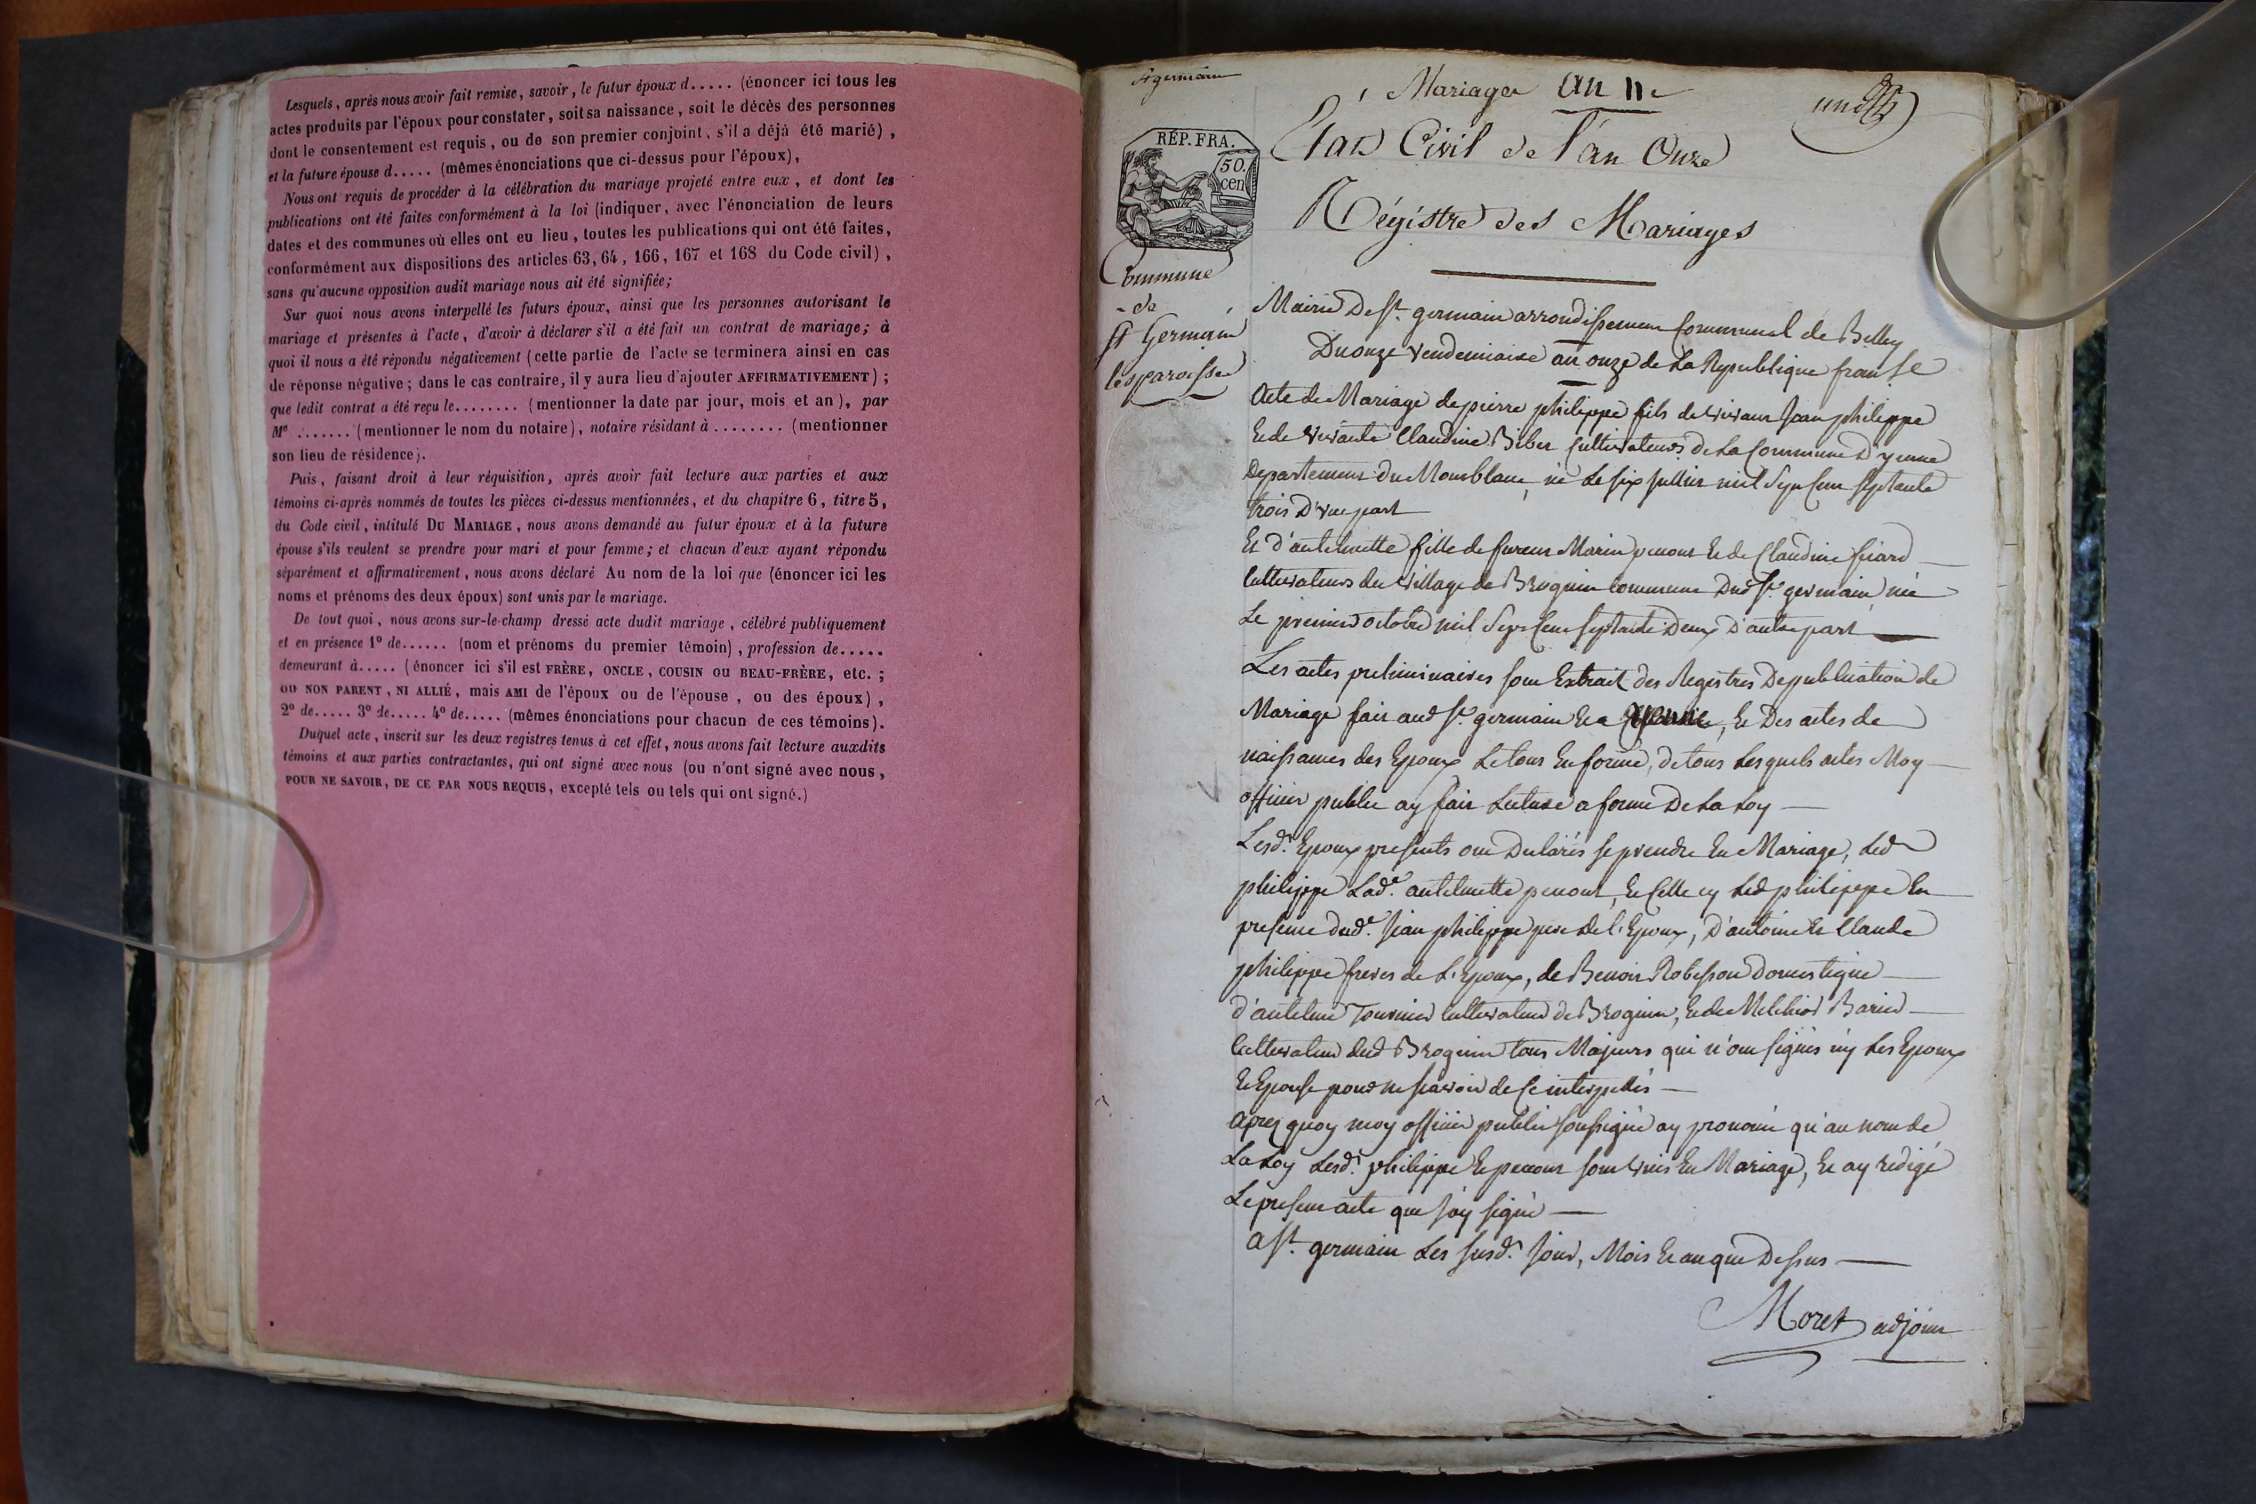 Lesquels, après nous avoir fait remise, savoir, le futur époux d..... (énoncer ici tous les
actes produits par l'époux pour constater, soit sa naissance, soit le décès des personnes
dont le consentement est requis, ou de son premier conjoint, s'il a déjà été marié),
et la future épouse d..... (mêmes énonciations que ci-dessus pour l'époux),
Nous ont requis de procéder à la célébration du mariage projeté entre eux, et dont les
publications ont été faites conformément à la loi (indiquer, avec l'énonciation de leurs
dates et des communes où elles ont eu lieu, toutes les publications qui ont été faites,
conformément aux dispositions des articles 63, 64, 166, 167 et 168 du Code civil),
sans qu'aucune opposition audit mariage nous ait été signifiée;
Sur quoi nous avons interpellé les futurs époux, ainsi que les personnes autorisant le
mariage et présentes à l'acte, d'avoir à déclarer s'il a été fait un contrat de mariage; à
quoi il nous a été répondu négativement (cette partie de l'acte se terminera ainsi en cas
de réponse négative; dans le cas contraire, il y aura lieu d'ajouter AFFIRMATIVEMENT);
que ledit contrat a été reçu le........ (mentionner la date par jour, mois et an), par
Me ....... (mentionner le nom du notaire), notaire résidant à ........ (mentionner
son lieu de résidence).
Puis, faisant droit à leur réquisition, après avoir fait lecture aux parties et aux
témoins ci-après nommés de toutes les pièces ci-dessus mentionnées, et du chapitre 6, titre 5,
du Code civil, intitulé DU MARIAGE, nous avons demandé au futur époux et à la future
épouse s'ils veulent se prendre pour mari et pour femme; et chacun d'eux ayant répondu
séparément et affirmativement, nous avons déclaré Au nom de la loi que (énoncer ici les
noms et prénoms des deux époux) sont unis par le mariage.
De tout quoi, nous avons sur-le-champ dressé acte dudit mariage, célébré publiquement
et en présence 1º de...... (nom et prénoms du premier témoin), profession de.....
demeurant à..... (énoncer ici s'il est FRÈRE, ONCLE, COUSIN OU BEAU-FRÈRE, etc.;
OU NON PARENT, NI ALLIÉ, mais AMI de l'époux ou de l'épouse, ou des époux),
2º de..... 3º de..... 4º de..... (mêmes énonciations pour chacun de ces témoins).
Duquel acte, inscrit sur les deux registres tenus à cet effet, nous avons fait lecture auxdits
témoins et aux parties contractantes, qui ont signé avec nous (ou n'ont signé avec nous,
POUR NE SAVOIR, DE CE PAR NOUS REQUIS, excepté tels ou tels qui ont signé.)
St germain
Mariages an 11e
RÉP. FRA.
50.
cen
Etat Civil de l'an Onze
Régistre des Mariages
Commune
de
St Germain
les paroisses
Mairie De St. germain arrondissement Communal de Belley
Du onze vendemiaire an onze de La Republique franse
Acte de Mariage de pierre philippe fils de vivant Jean philippe
Et de vivante Claudine Biber Cultivateurs de La Commune D'yenne
Departement du Montblanc, né Le six Juillet mil Sept Cent Septante
trois D'une part
Et d'antelmette fille de furent Marin penout Et de Claudine
Cultivateurs du village de Brognin Commune Dud St. germain née
Le premier octobre mil Sept Cent Septante Deux D'autre part
Les actes preliminaires sont Extrait des Registres De publication de
Mariage fait aud St. germain Et a yenne, Et Des actes de
naissances des Epoux Le tout En forme, de tous Lesquels actes Moy
officier public ay fait Lecture a forme De La Loy
Lesd. Epoux presents ont Declarés se prendre En Mariage, Led
philippe Lade. antelmette penout, Et Celle cy Led philippe En
presence dud. Jean philippe pere de L'Epoux, D'antoine Et Claude
philippe freres de L'Epoux, de Benoit Robesson Domestique
d'antelme Tournier Cultivateur de Brognin, Et de Melchior Barin
Cultivateur dud Brognin tous Majeurs qui n'ont signés ny Les Epoux
Et Epouse pour ne savoir de Ce interpellés
Apres quoy moy officier public soussigné ay prononcé qu'au nom de
La Loy Lesd. philippe Et penout sont unis En Mariage, Et ay redigé
Le present acte que J'ay signé
A St. germain Les susd. Jour, Mois Et an que Dessus
Moret adjoint